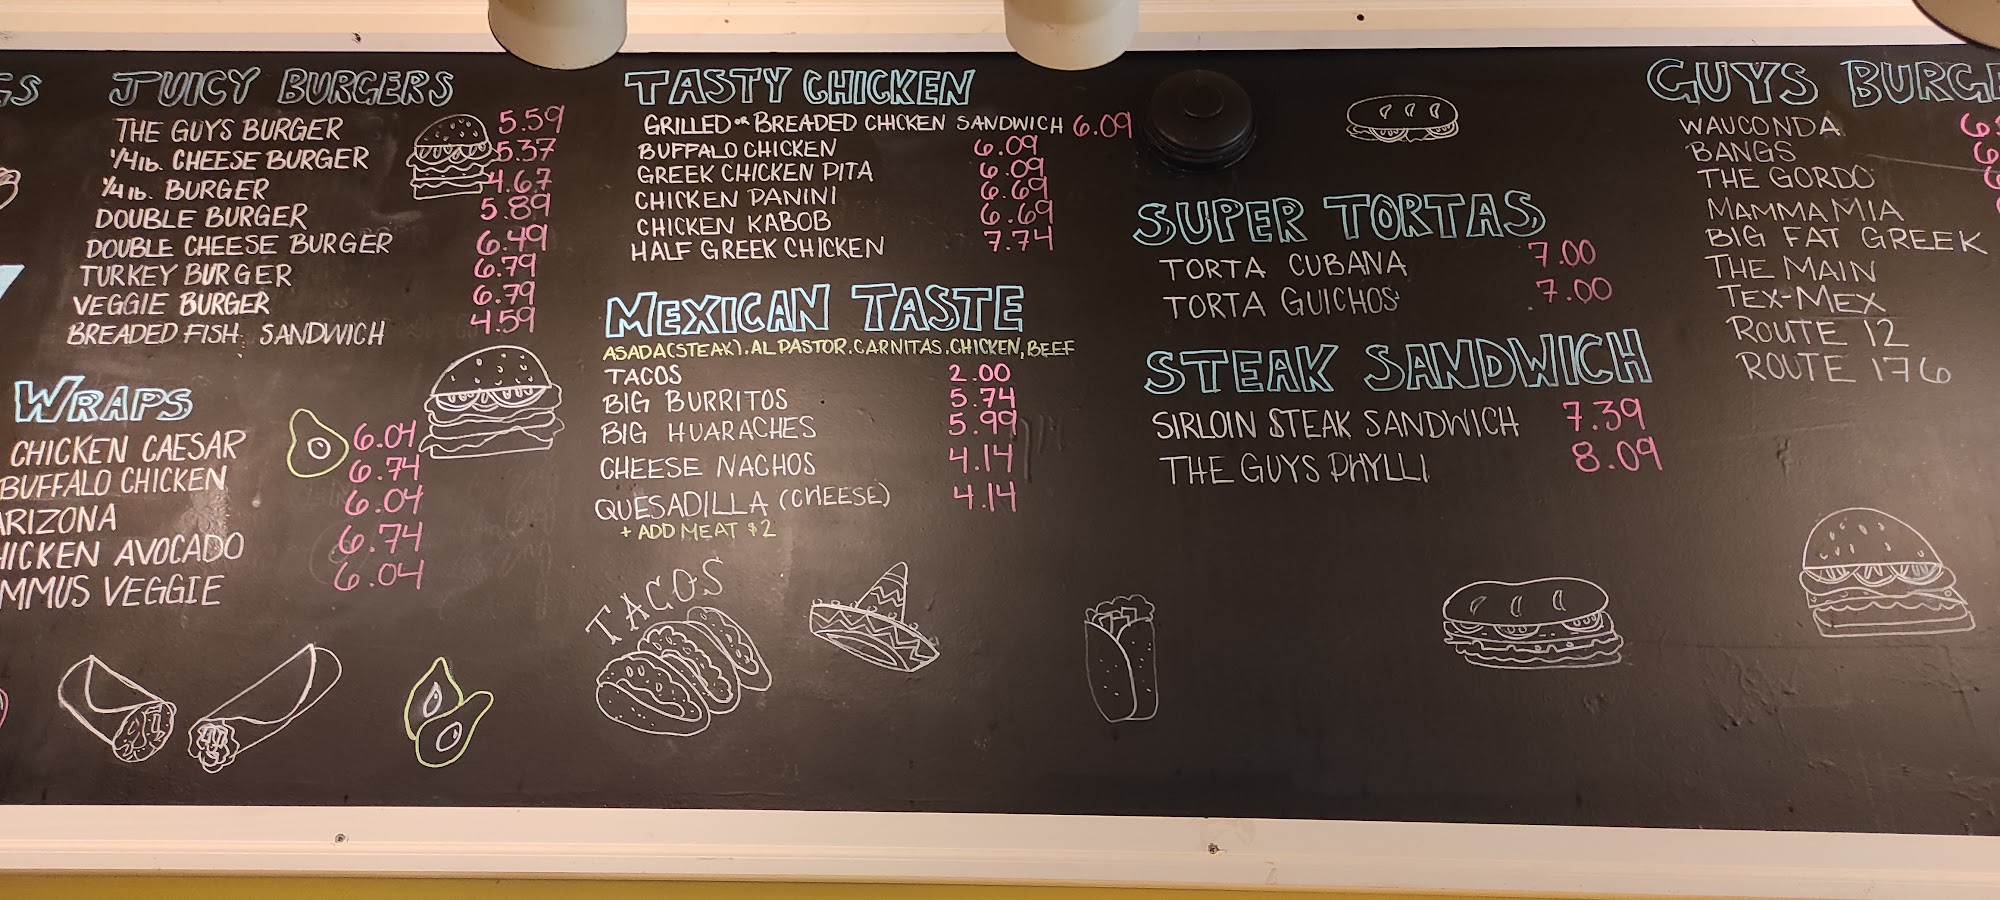 GS
JUICY BURGERS
THE GUYS BURGER 5.59
1/4 lb. CHEESE BURGER 5.37
1/4 lb. BURGER 4.67
DOUBLE BURGER 5.89
DOUBLE CHEESE BURGER 6.49
TURKEY BURGER 6.79
VEGGIE BURGER 6.79
BREADED FISH SANDWICH 4.59
WRAPS
CHICKEN CAESAR 6.04
BUFFALO CHICKEN 6.74
ARIZONA 6.04
HICKEN AVOCADO 6.74
MMUS VEGGIE 6.04
TASTY CHICKEN
GRILLED OR BREADED CHICKEN SANDWICH 6.09
BUFFALO CHICKEN 6.09
GREEK CHICKEN PITA 6.09
CHICKEN PANINI 6.69
CHICKEN KABOB 6.69
HALF GREEK CHICKEN 7.74
MEXICAN TASTE
ASADA(STEAK). AL PASTOR. CARNITAS, CHICKEN, BEEF
TACOS 2.00
BIG BURRITOS 5.74
BIG HUARACHES 5.99
CHEESE NACHOS 4.14
QUESADILLA (CHEESE) 4.14
+ ADD MEAT $2
TACOS
SUPER TORTAS
TORTA CUBANA 7.00
TORTA GUICHOS 7.00
STEAK SANDWICH
SIRLOIN STEAK SANDWICH 7.39
THE GUYS PHYLLI 8.09
GUYS BURGE
WAUCONDA 6
BANGS 6
THE GORDO
MAMMA MIA
BIG FAT GREEK
THE MAIN
TEX-MEX
ROUTE 12
ROUTE 176